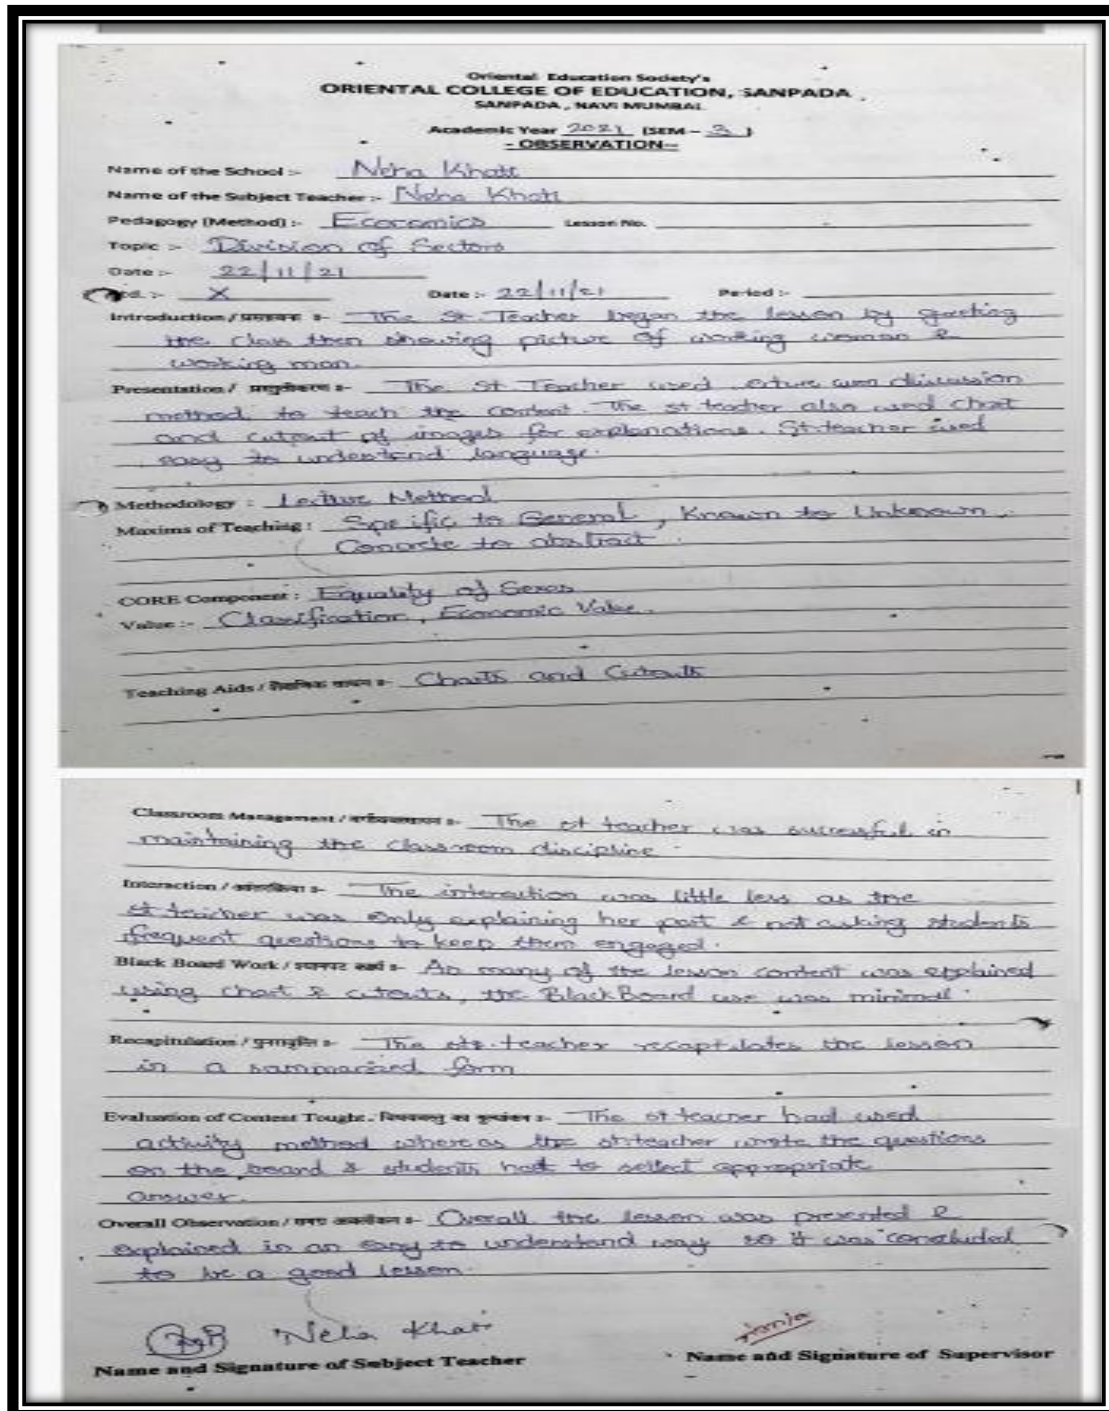 Oriental Education Society's
ORIENTAL COLLEGE OF EDUCATION, SANPADA.
SANPADA, NAVI MUMBAI.
Academic Year 2021 (SEM - 3)
- OBSERVATION -
Name of the School :- Neha Khati
Name of the Subject Teacher :- Neha Khati
Pedagogy (Method) :- Economics Lesson No.
Topic :- Division of Sectors
Date :- 22/11/21
Std. :- X Date :- 22/11/21 Period :-
Introduction / :- The St. Teacher began the lesson by greeting
the class then showing picture of working woman &
working man.
Presentation / प्रस्तुतीकरण :- The St. Teacher used cum discussion
method to teach the content. The st. teacher also used chart
and cutout of images for explanations. St. teacher used
easy to understand language.
Methodology : Lecture Method
Maxims of Teaching : Specific to General, Known to Unknown,
Concrete to abstract.
CORE Component : Equality of Sexes
Value :- Classification, Economic Value.
Teaching Aids / शैक्षणिक साधन :- Charts and Cutouts
Classroom Management / :- The st teacher was successful in
maintaining the classroom discipline.
Interaction / :- The interaction was little less as the
st teacher was only explaining her part & not asking students
frequent questions to keep them engaged.
Black Board Work / :- As many of the lesson content was explained
using chart & cutouts, the BlackBoard use was minimal.
Recapitulation / :- The teacher the lesson
in a form
Evaluation of Content Tought. :- The st teacher had used
activity method whereas the st.teacher wrote the questions
on the board & students had to select appropriate
answer.
Overall Observation / :- Overall the lesson was presented &
explained in an easy to understand way so it was concluded
to be a good lesson.
Neha Khati
Name and Signature of Subject Teacher Name and Signature of Supervisor